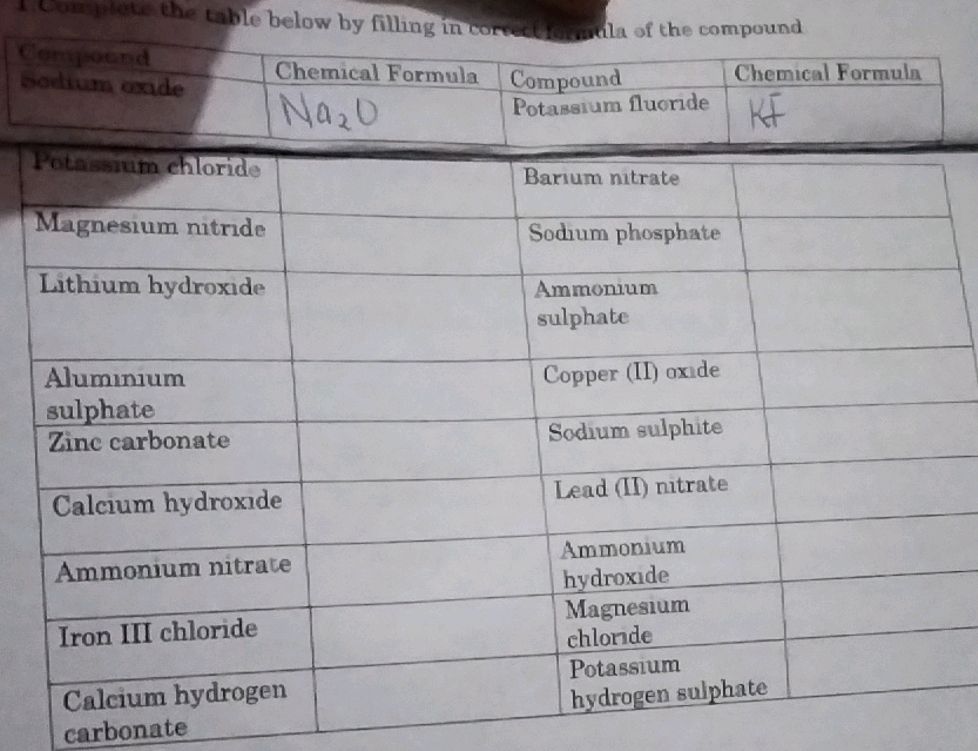 1 Complete the table below by filling in correct formula of the compound
Compound Chemical Formula Compound Chemical Formula
Sodium oxide Na₂O Potassium fluoride KF
Potassium chloride Barium nitrate
Magnesium nitride Sodium phosphate
Lithium hydroxide Ammonium
sulphate
Aluminium Copper (II) oxide
sulphate
Zinc carbonate Sodium sulphite
Calcium hydroxide Lead (II) nitrate
Ammonium nitrate Ammonium
hydroxide
Iron III chloride Magnesium
chloride
Calcium hydrogen Potassium
carbonate hydrogen sulphate